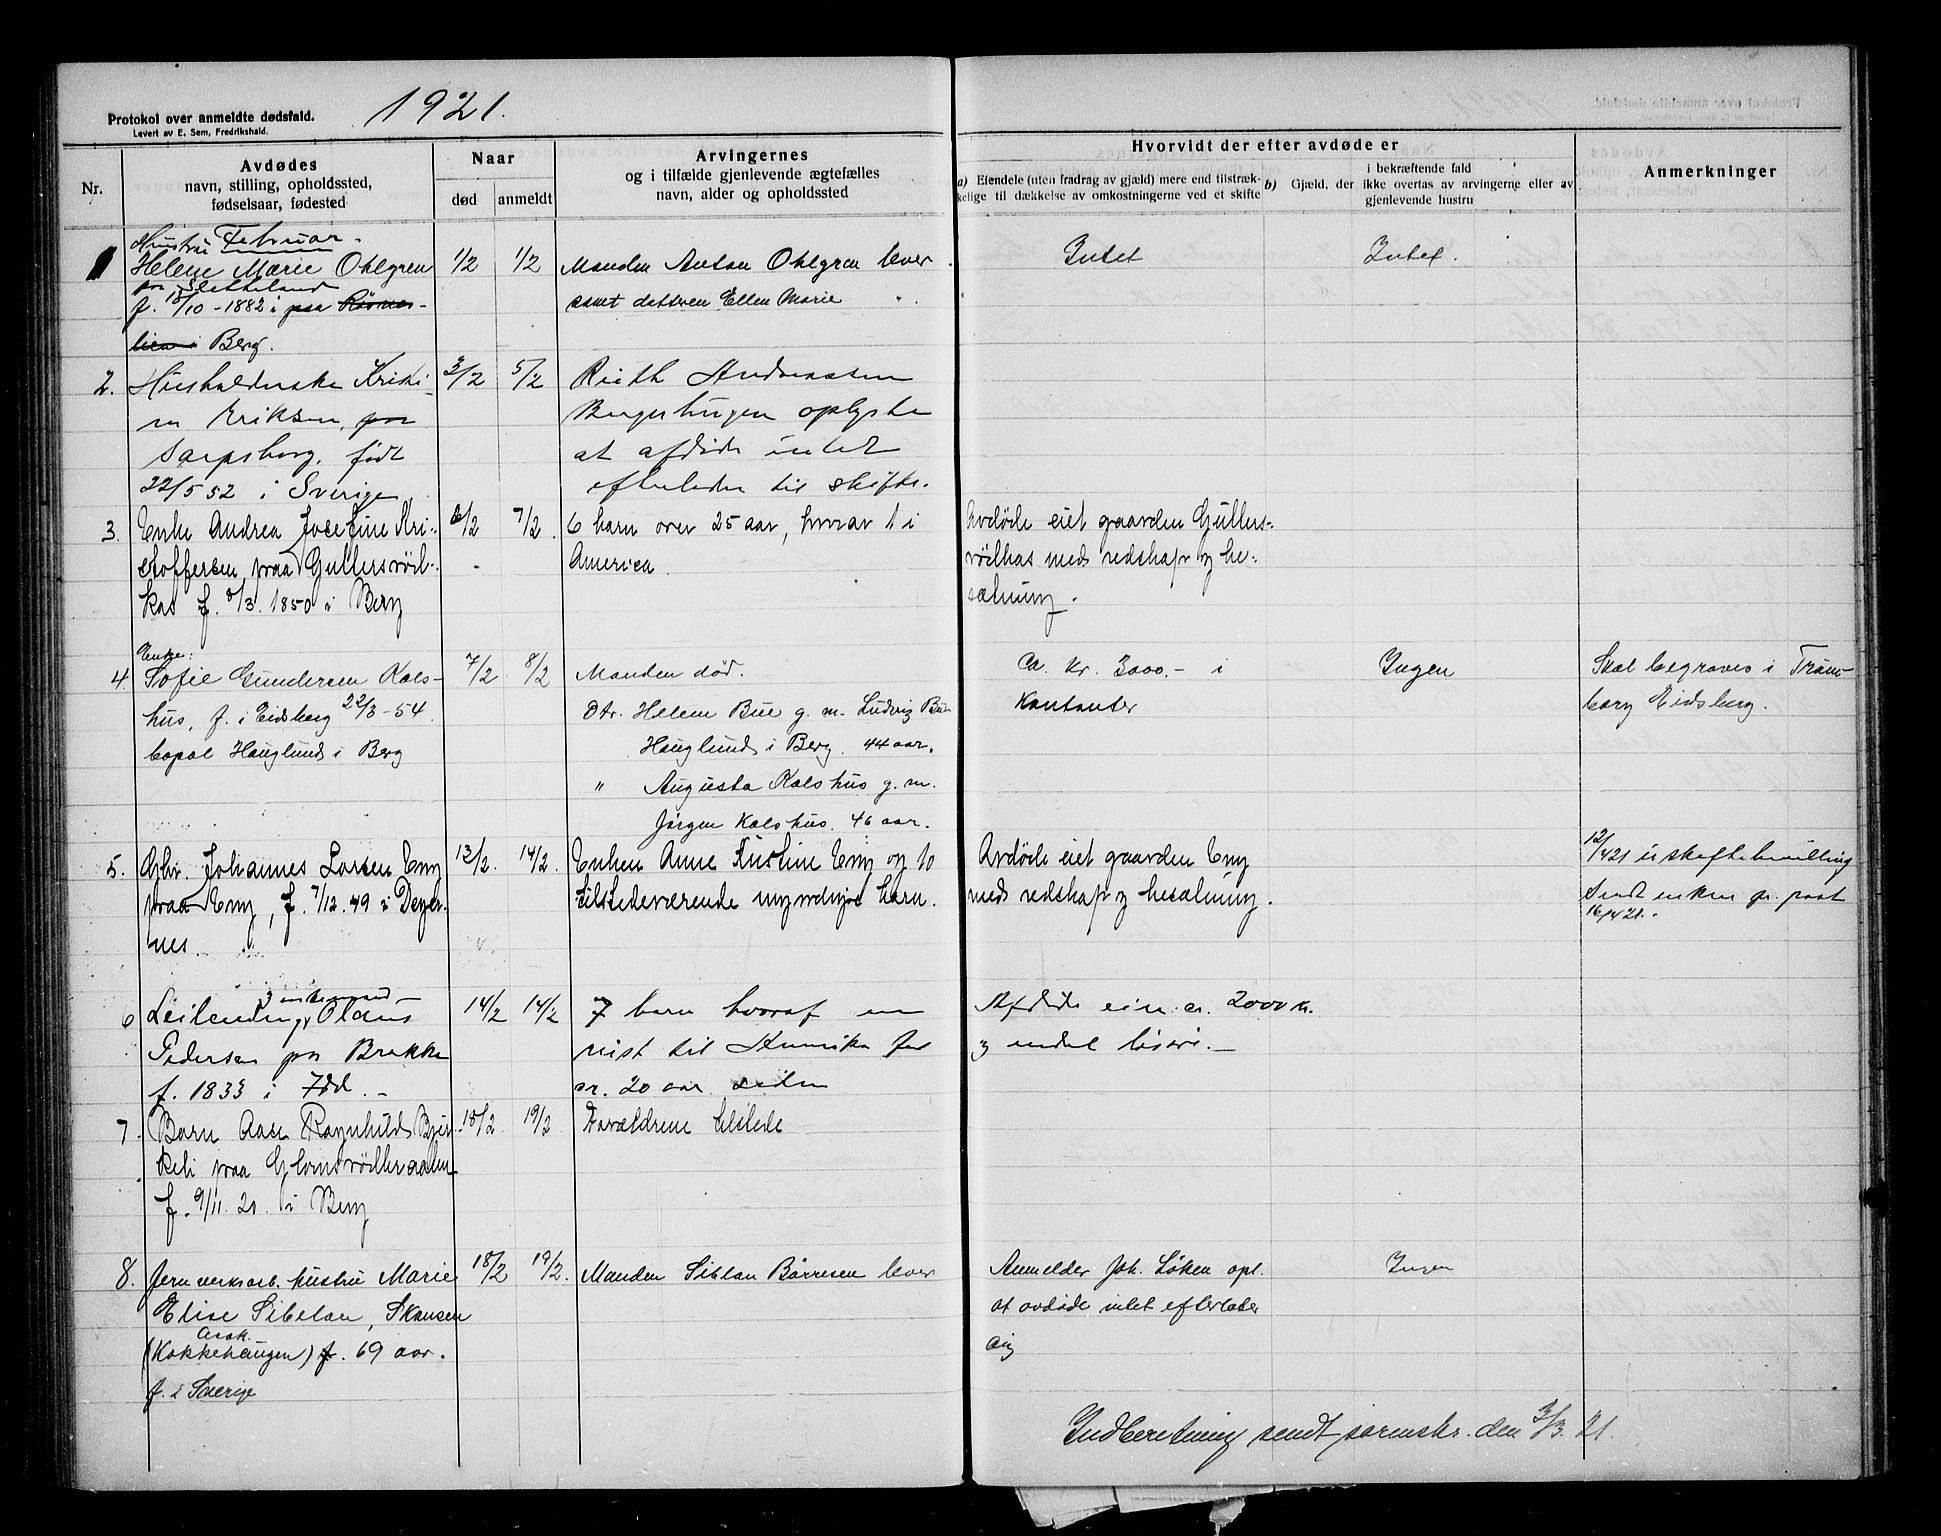 Protokol over anmeldte dødsfald.
Levert av E. Sem, Fredrikshald.
1921.
Nr.
Avdødes
navn, stilling, opholdssted,
fødselsaar, fødested
Naar
død
anmeldt
Arvingernes
og i tilfælde gjenlevende ægtefælles
navn, alder og opholdssted
Hvorvidt der efter avdøde er
a) Eiendele (uten fradrag av gjæld) mere end tilstræk-
kelige til dækkelse av omkostningerne ved et skifte
b) Gjæld, der
i bekræftende fald
ikke overtas av arvingerne eller av
gjenlevende hustru
Anmerkninger
Februar.
1
Hustru
Helene Marie Ohlgren
paa
f. 18/10 - 1882 i paa
i Berg.
1/2
1/2
Manden Anton Ohlgren lever
samt datteren Ellen Marie "
Intet
Intet.
2.
Husholderske Kristi-
na Eriksen, paa
Sarpsborg, født
22/5 52 i Sverige
3/2
5/2
Ruth Andreassen
Bergerhaugen oplyste
at afdøde intet
efterlader til skifte.
3.
Enke Andrea Josefine Kri-
stoffersen paa Gullersrød-
kas f. 8/3. 1850 i Berg
6/2
7/2.
6 barn over 25 aar, hvorav 1 i
America
Avdøde eiet gaarden Gullers-
rødkas med redskap og be-
sætning.
4.
Enke:
Sofie Gundersen Kols-
hus, f. i Eidsberg 22/3 - 54.
bopæl Hauglund i Berg
7/2
8/2
Manden død.
Dtr. Helene Bue g. m. Ludvig Bue
Hauglund i Berg. 44 aar.
" Augusta Kolshus g. m.
Jørgen Kolshus. 46 aar.
Ca. kr. 3000.- i
Kontanter
Ingen
Skal begraves i Trøm-
borg Eidsberg.
5.
Gbr. Johannes Larsen Eng
paa Eng, f. 7/12. 49 i Deger-
nes.
13/2.
14/2.
Enken Anne Kristine Eng og 10
tilstedeværende myndige barn.
Avdøde eiet gaarden Eng
med redskap og besætning.
12/4 21 uskiftebevilling
sendt enken pr. post
16/4 21.-
6
Leilending Olaus
Pedersen paa Brekke
f. 1833 i Idd.-
14/2
14/2
7 barn hvoraf en
reist til Amerika for
ca. 20 aar siden
Afdøde eier ca. 2000 kr.
og endel løsøre.-
7.
Barn Aase Ragnhild
paa
f. 9/11. 20. i Berg
18/2
19/2
Forældrene tilstede
8.
Jernverksarb. hustru Marie
Elise Siblan, Skansen
Asak.
(Kokkehaugen) f. 69 aar.
f. i Sverige
18/2
19/2.
Manden Siblan Børresen lever
Anmelder Joh. Løken opl.
at avdøde intet efterlater
sig
Ingen
Indberetning sendt sorenskr. den 3/3. 21.